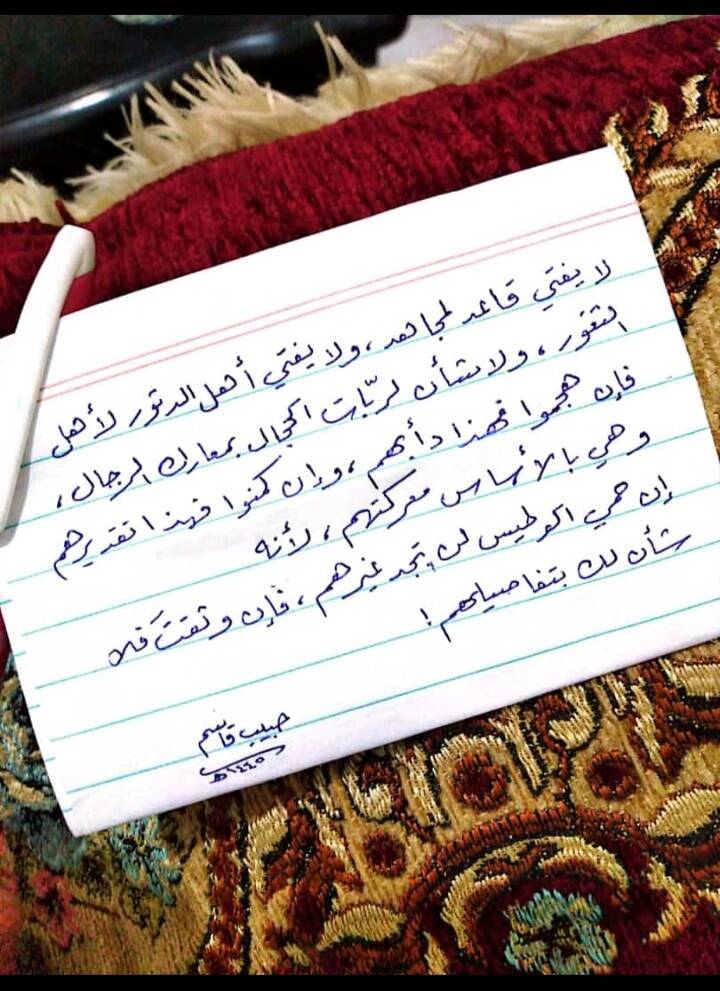 لا يفتي قاعد لمجاهد، ولا يفتي أهل الدثور لأهل
الثغور، ولا شأن لربّات الحجال بمعارك الرجال،
فإن هجموا فهذا دأبهم، وإن كمنوا فهذا تقديرهم
وهي بالأساس معركتهم، لأنه
إن حمي الوطيس لن تجد غيرهم، فإن وثقتَ فلا
شأن لك بتفاصيلهم!
حبيب قاسم
١٤٤٥هـ